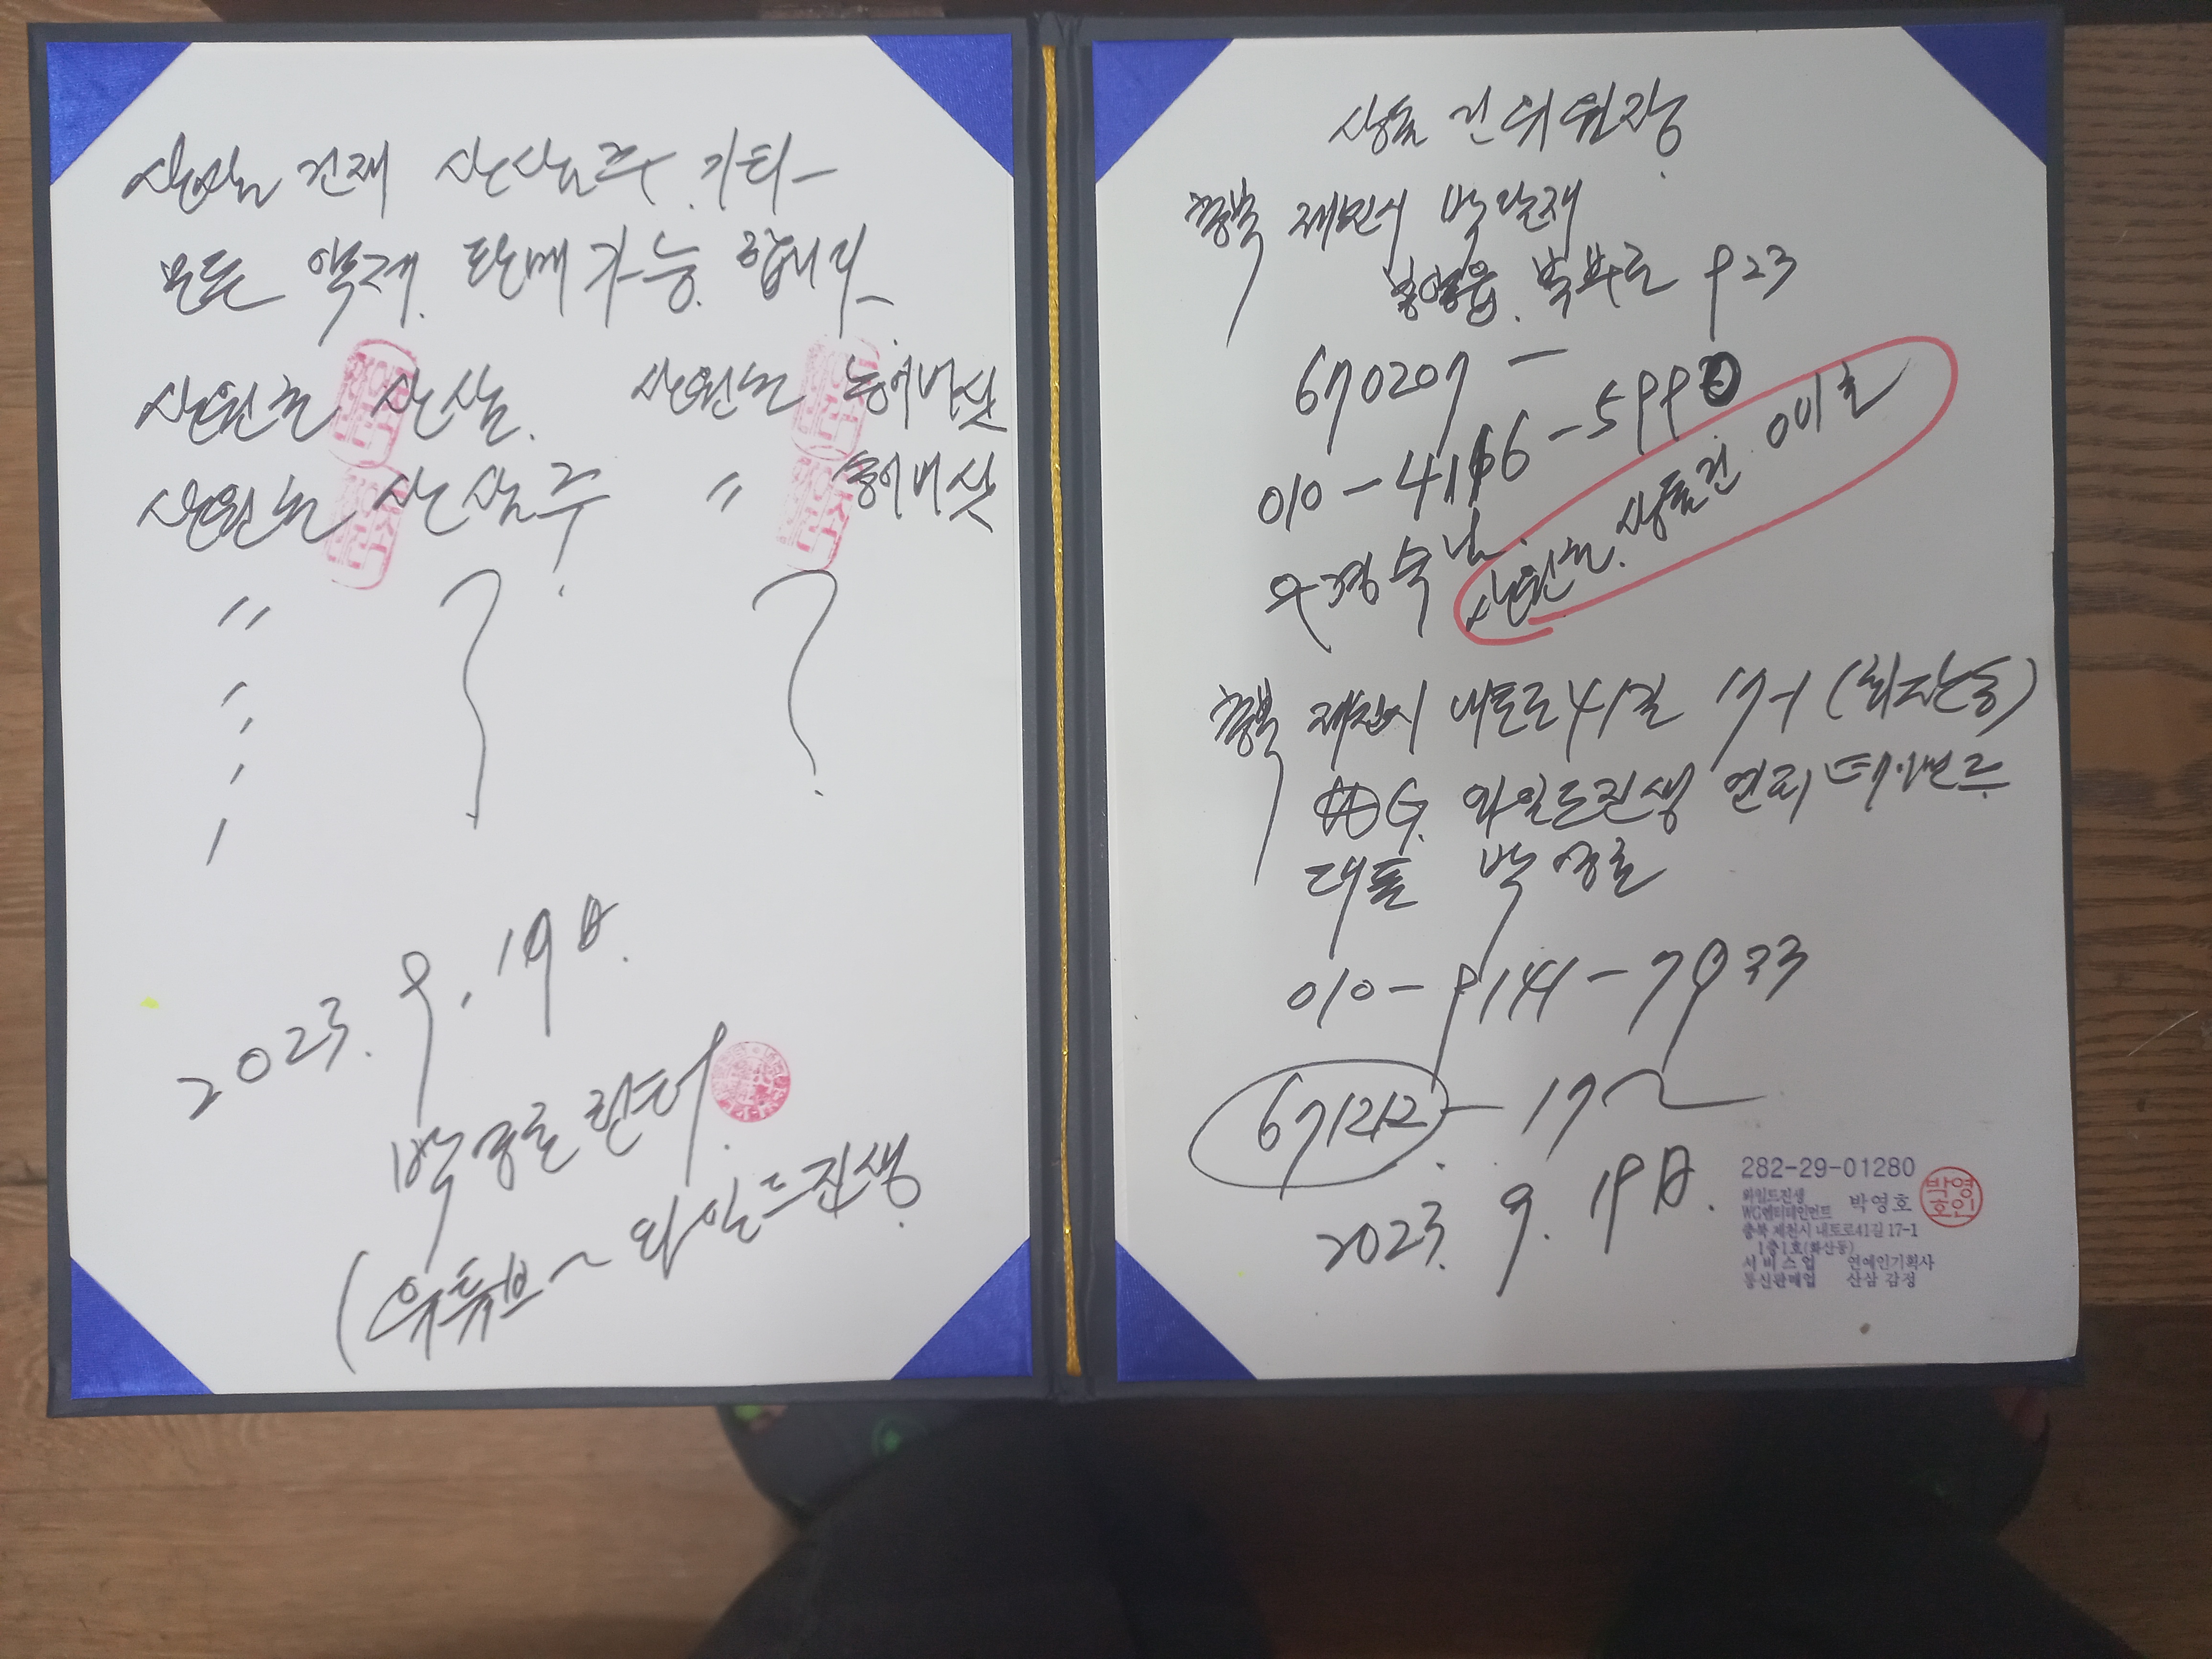 산삼 건재 산삼주 기타
모든 약재 판매 가능 합니다
산원초 산삼. 산원초 능이버섯
산원초 산삼주 〃 송이버섯
〃 ? ?
2023. 9. 19日.
박영호 헌터.
(유튜브~ 와일드진생
상표권 위원장
충북 제천시 박달재
봉양읍. 북부로 923
670207 -
010-4166-599
우경숙 님.
산원초. 상표권 여비호
충북 제천시 내토로41길 17-1 (화산동)
WG. 와일드진생 엔터테인먼트
대표 박영호
010-9141-7933
671212 - 17~
2023. 9. 19日.
282-29-01280
와일드진생
WG엔터테인먼트 박영호
박영호인
충북 제천시 내토로41길 17-1
1층1호(화산동)
서비스업 연예인기획사
통신판매업 산삼 감정